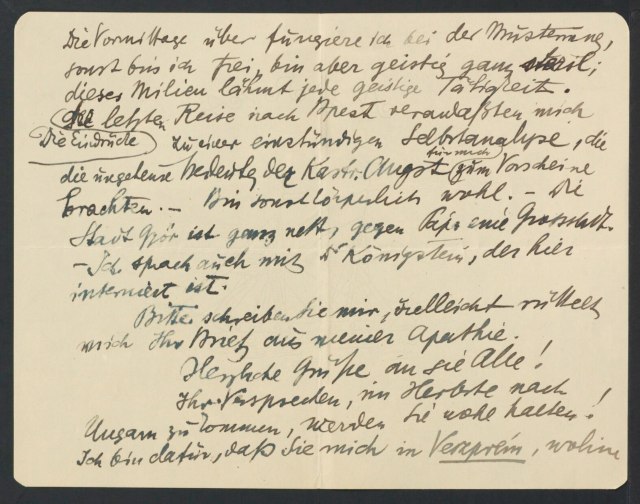 Die Vormittage über fungiere ich bei der Musterung,
sonst bin ich frei, bin aber geistig ganz steril;
dieses Milieu lähmt jede geistige Tätigkeit.
der letzten Reise nach Bpest veranlaßten mich
Die Eindrücke zu einer einstündigen Selbstanalyse, die
für mich
die ungeheure Bedeutg der Kastr. Angst zum Vorscheine
brachten. – Bin sonst körperlich wohl. – Die
Stadt Győr ist ganz nett, gegen Pápa eine Großstadt.
– Ich sprach auch mit Dr Königstein, der hier
interniert ist.
Bitte schreiben Sie mir, vielleicht rüttelt
mich Ihr Brief aus meiner Apathie.
Herzliche Grüße an Sie Alle!
Ihr Versprechen, im Herbste nach
Ungarn zu kommen, werden Sie wohl halten!
Ich bin dafür, daß Sie mich in Veszprém, wohin